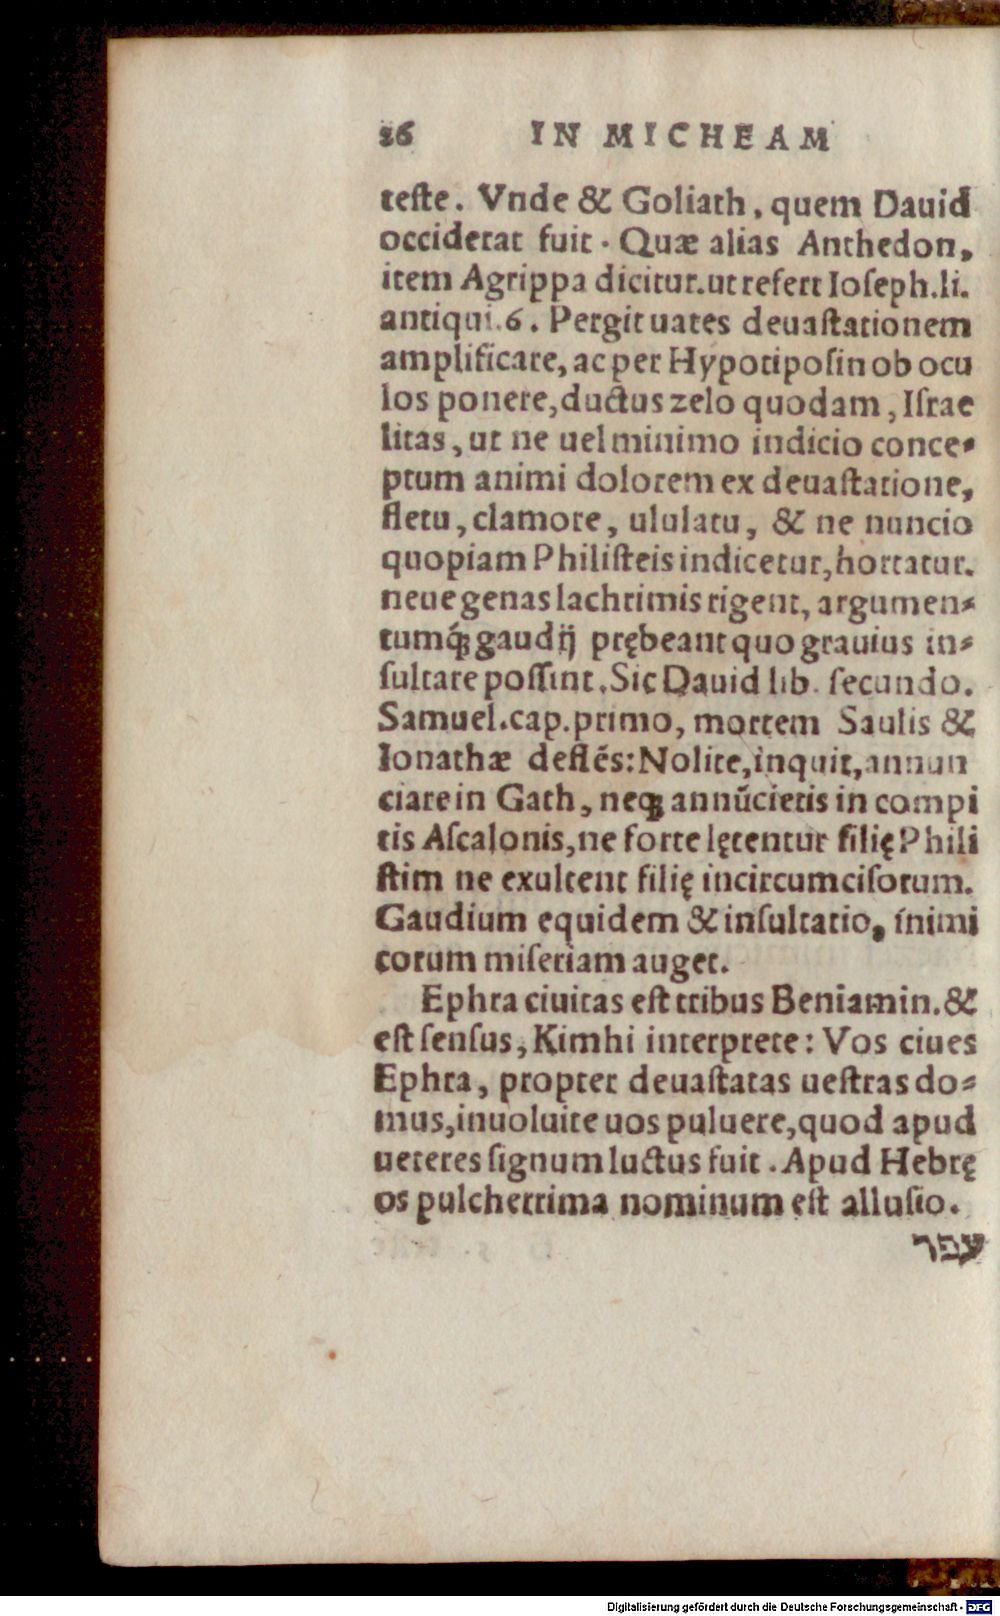 26 IN MICHEAM
teſte. Vnde & Goliath, quem Dauid
occiderat fuit. Quæ alias Anthedon,
item Agrippa dicitur. ut refert Ioſeph. li.
antiqui. 6. Pergit uates deuaſtationem
amplificare, ac per Hypotipoſin ob ocu
los ponere, ductus zelo quodam, Iſrae
litas, ut ne uel minimo indicio conce⸗
ptum animi dolorem ex deuaſtatione,
fletu, clamore, ululatu, & ne nuncio
quopiam Philiſteis indicetur, hortatur.
neue genas lachrimis rigent, argumen⸗
tumq́ꝫ gaudij prębeant quo grauius in⸗
ſultare poſſint. Sic Dauid lib. ſecundo.
Samuel. cap. primo, mortem Saulis &
Ionathæ deflẽs: Nolite, inquit, annun
ciare in Gath, neqꝫ annũcietis in compi
tis Aſcalonis, ne forte lętentur filię Phili
ſtim ne exultent filię incircumciſorum.
Gaudium equidem & inſultatio, inimi
corum miſeriam auget.
Ephra ciuitas eſt tribus Beniamin. &
eſt ſenſus, Kimhi interprete: Vos ciues
Ephra, propter deuaſtatas ueſtras do⸗
mus, inuoluite uos puluere, quod apud
ueteres ſignum luctus fuit. Apud Hebrę
os pulcherrima nominum eſt alluſio.
עפר
Digitalisierung gefördert durch die Deutsche Forschungsgemeinschaft - DFG